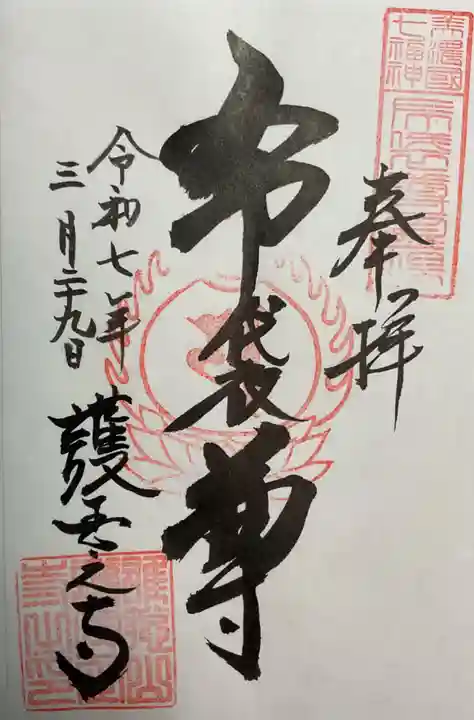 美濃國
七福神
奉拝
布袋尊
令和七年
三月二十九日
護国之寺